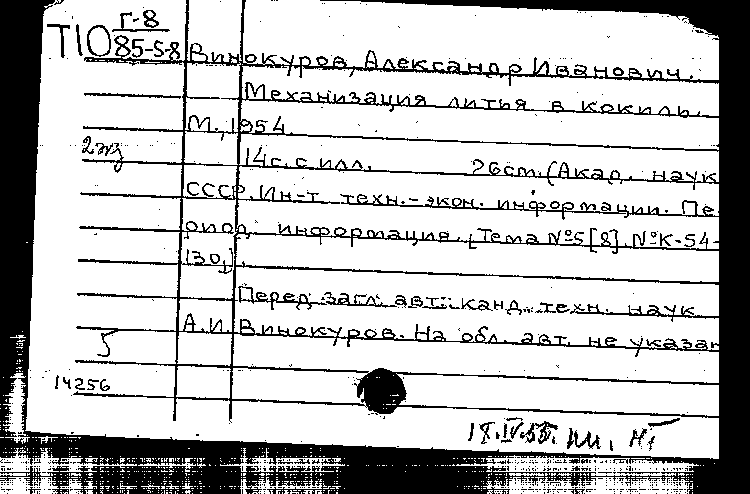 Т10 Г-8
85-5-8
Винокуров, Александр Иванович.
Механизация литья в кокиль.
М., 1954
2 экз
14 с. с илл. 26 cm. (Акад. наук
СССР. Ин-т техн.-экон. информации. Пе-
риод. информация. Тема №5[8]. №К-54-
130).
Перед загл. авт.: канд. техн. наук
А.И. Винокуров. На обл. авт. не указан
5
14256
18.IV.55.